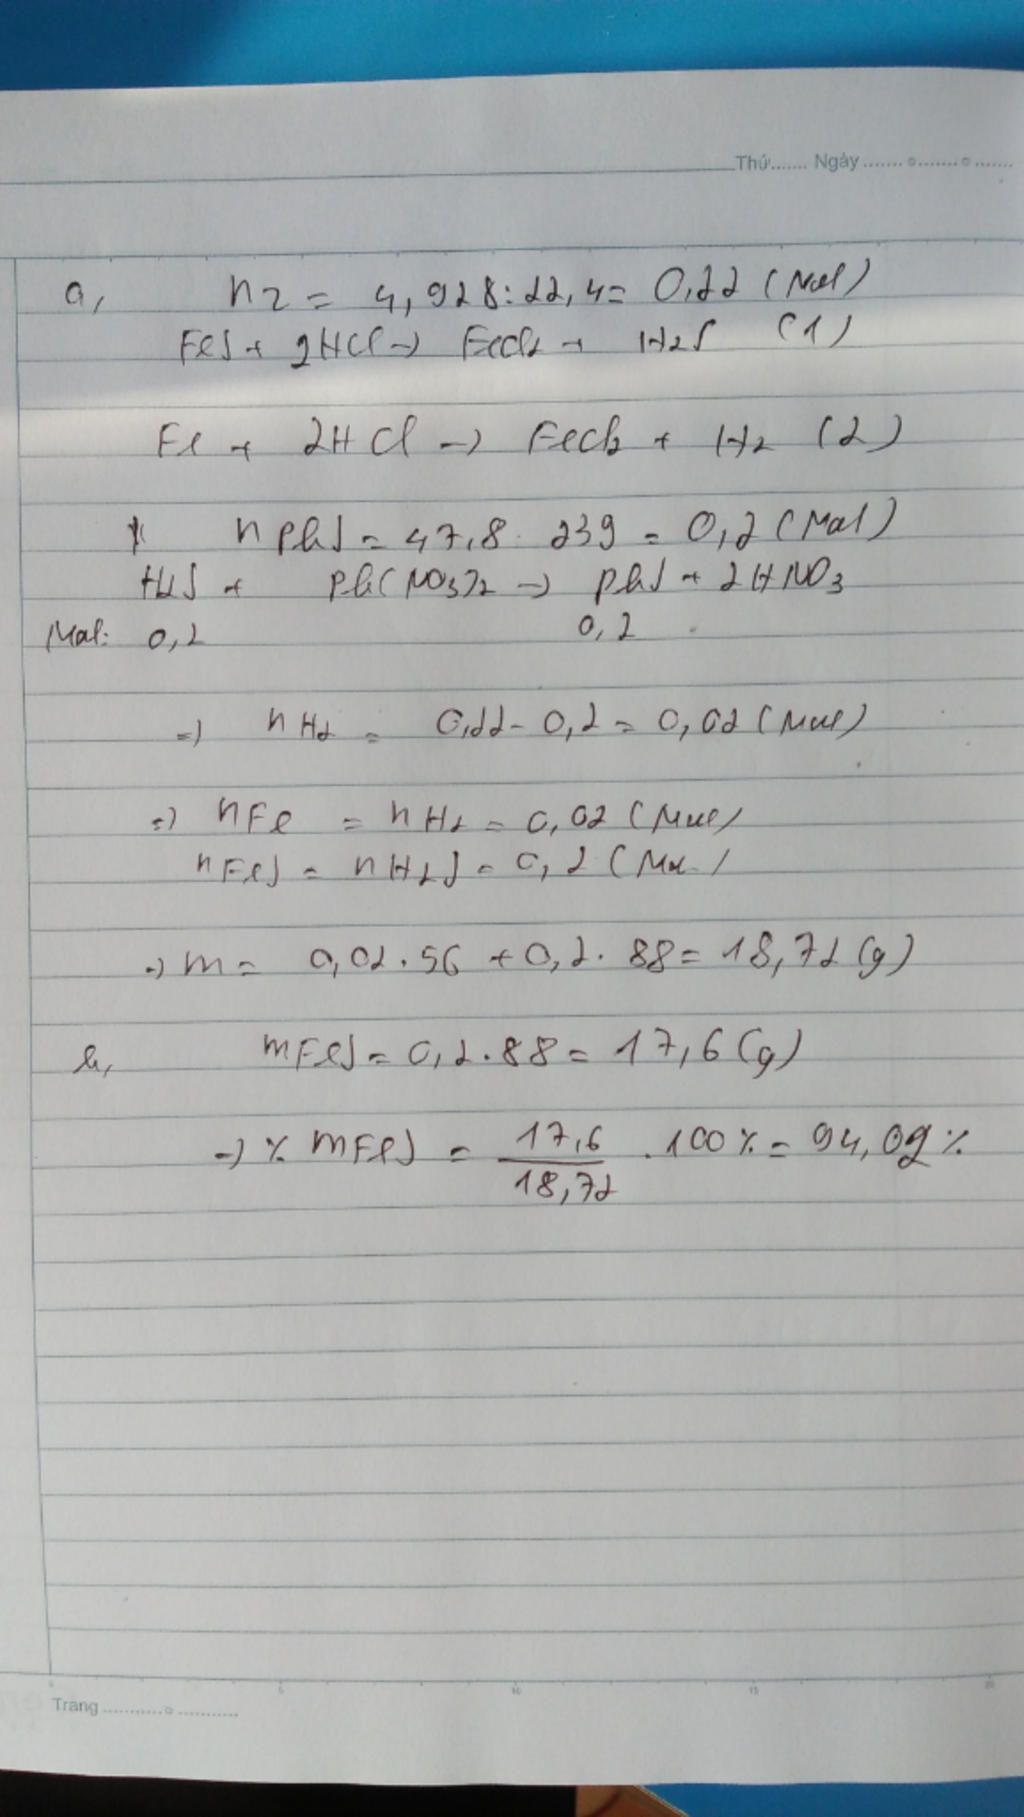 Thứ....... Ngày .......o.......o.......
a, nZ = 4,928:22,4= 0,22 (Mol)
FeS + 2HCl → FeCl2 + H2S (1)
Fe + 2HCl → FeCl2 + H2 (2)
* nPbS = 47,8 : 239 = 0,2 (Mol)
H2S + Pb(NO3)2 → PbS + 2HNO3
Mol: 0,2 0,2
=> nH2 = 0,22 - 0,2 = 0,02 (Mol)
=> nFe = nH2 = 0,02 (Mol)
nFeS = nH2S = 0,2 (Mol)
=> m = 0,02.56 + 0,2.88 = 18,72 (g)
b, mFeS = 0,2.88 = 17,6 (g)
=> % mFeS = 17,6/18,72 .100% = 94,02%
0 5 10 15 20
Trang ...........o...........